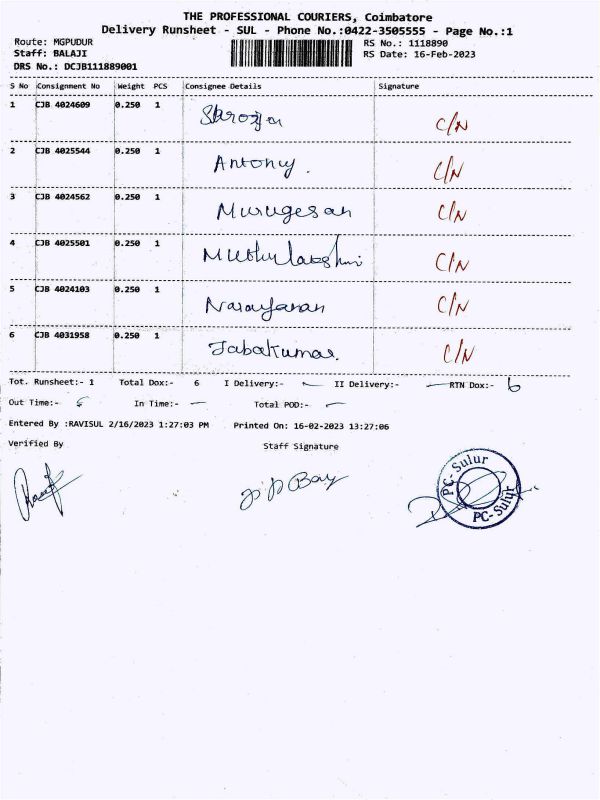 THE PROFESSIONAL COURIERS, Coimbatore
Delivery Runsheet - SUL - Phone No.:0422-3505555 - Page No.:1
Route: MGPUDUR
RS No.: 1118890
Staff: BALAJI
RS Date: 16-Feb-2023
DRS No.: DCJB111889001
S No Consignment No Weight PCS Consignee Details Signature
1 CJB 4024609 0.250 1 C/N
2 CJB 4025544 0.250 1 Antony. C/N
3 CJB 4024562 0.250 1 Murugesan C/N
4 CJB 4025501 0.250 1 Muthulakshmi C/N
5 CJB 4024103 0.250 1 Narayanan C/N
6 CJB 4031958 0.250 1 Jabakumar. C/N
Tot. Runsheet:- 1 Total Dox:- 6 I Delivery:- — II Delivery:- — RTN Dox:- 6
Out Time:- In Time:- — Total POD:- —
Entered By :RAVISUL 2/16/2023 1:27:03 PM Printed On: 16-02-2023 13:27:06
Verified By Staff Signature
PC-Sulur
PC-Sulur